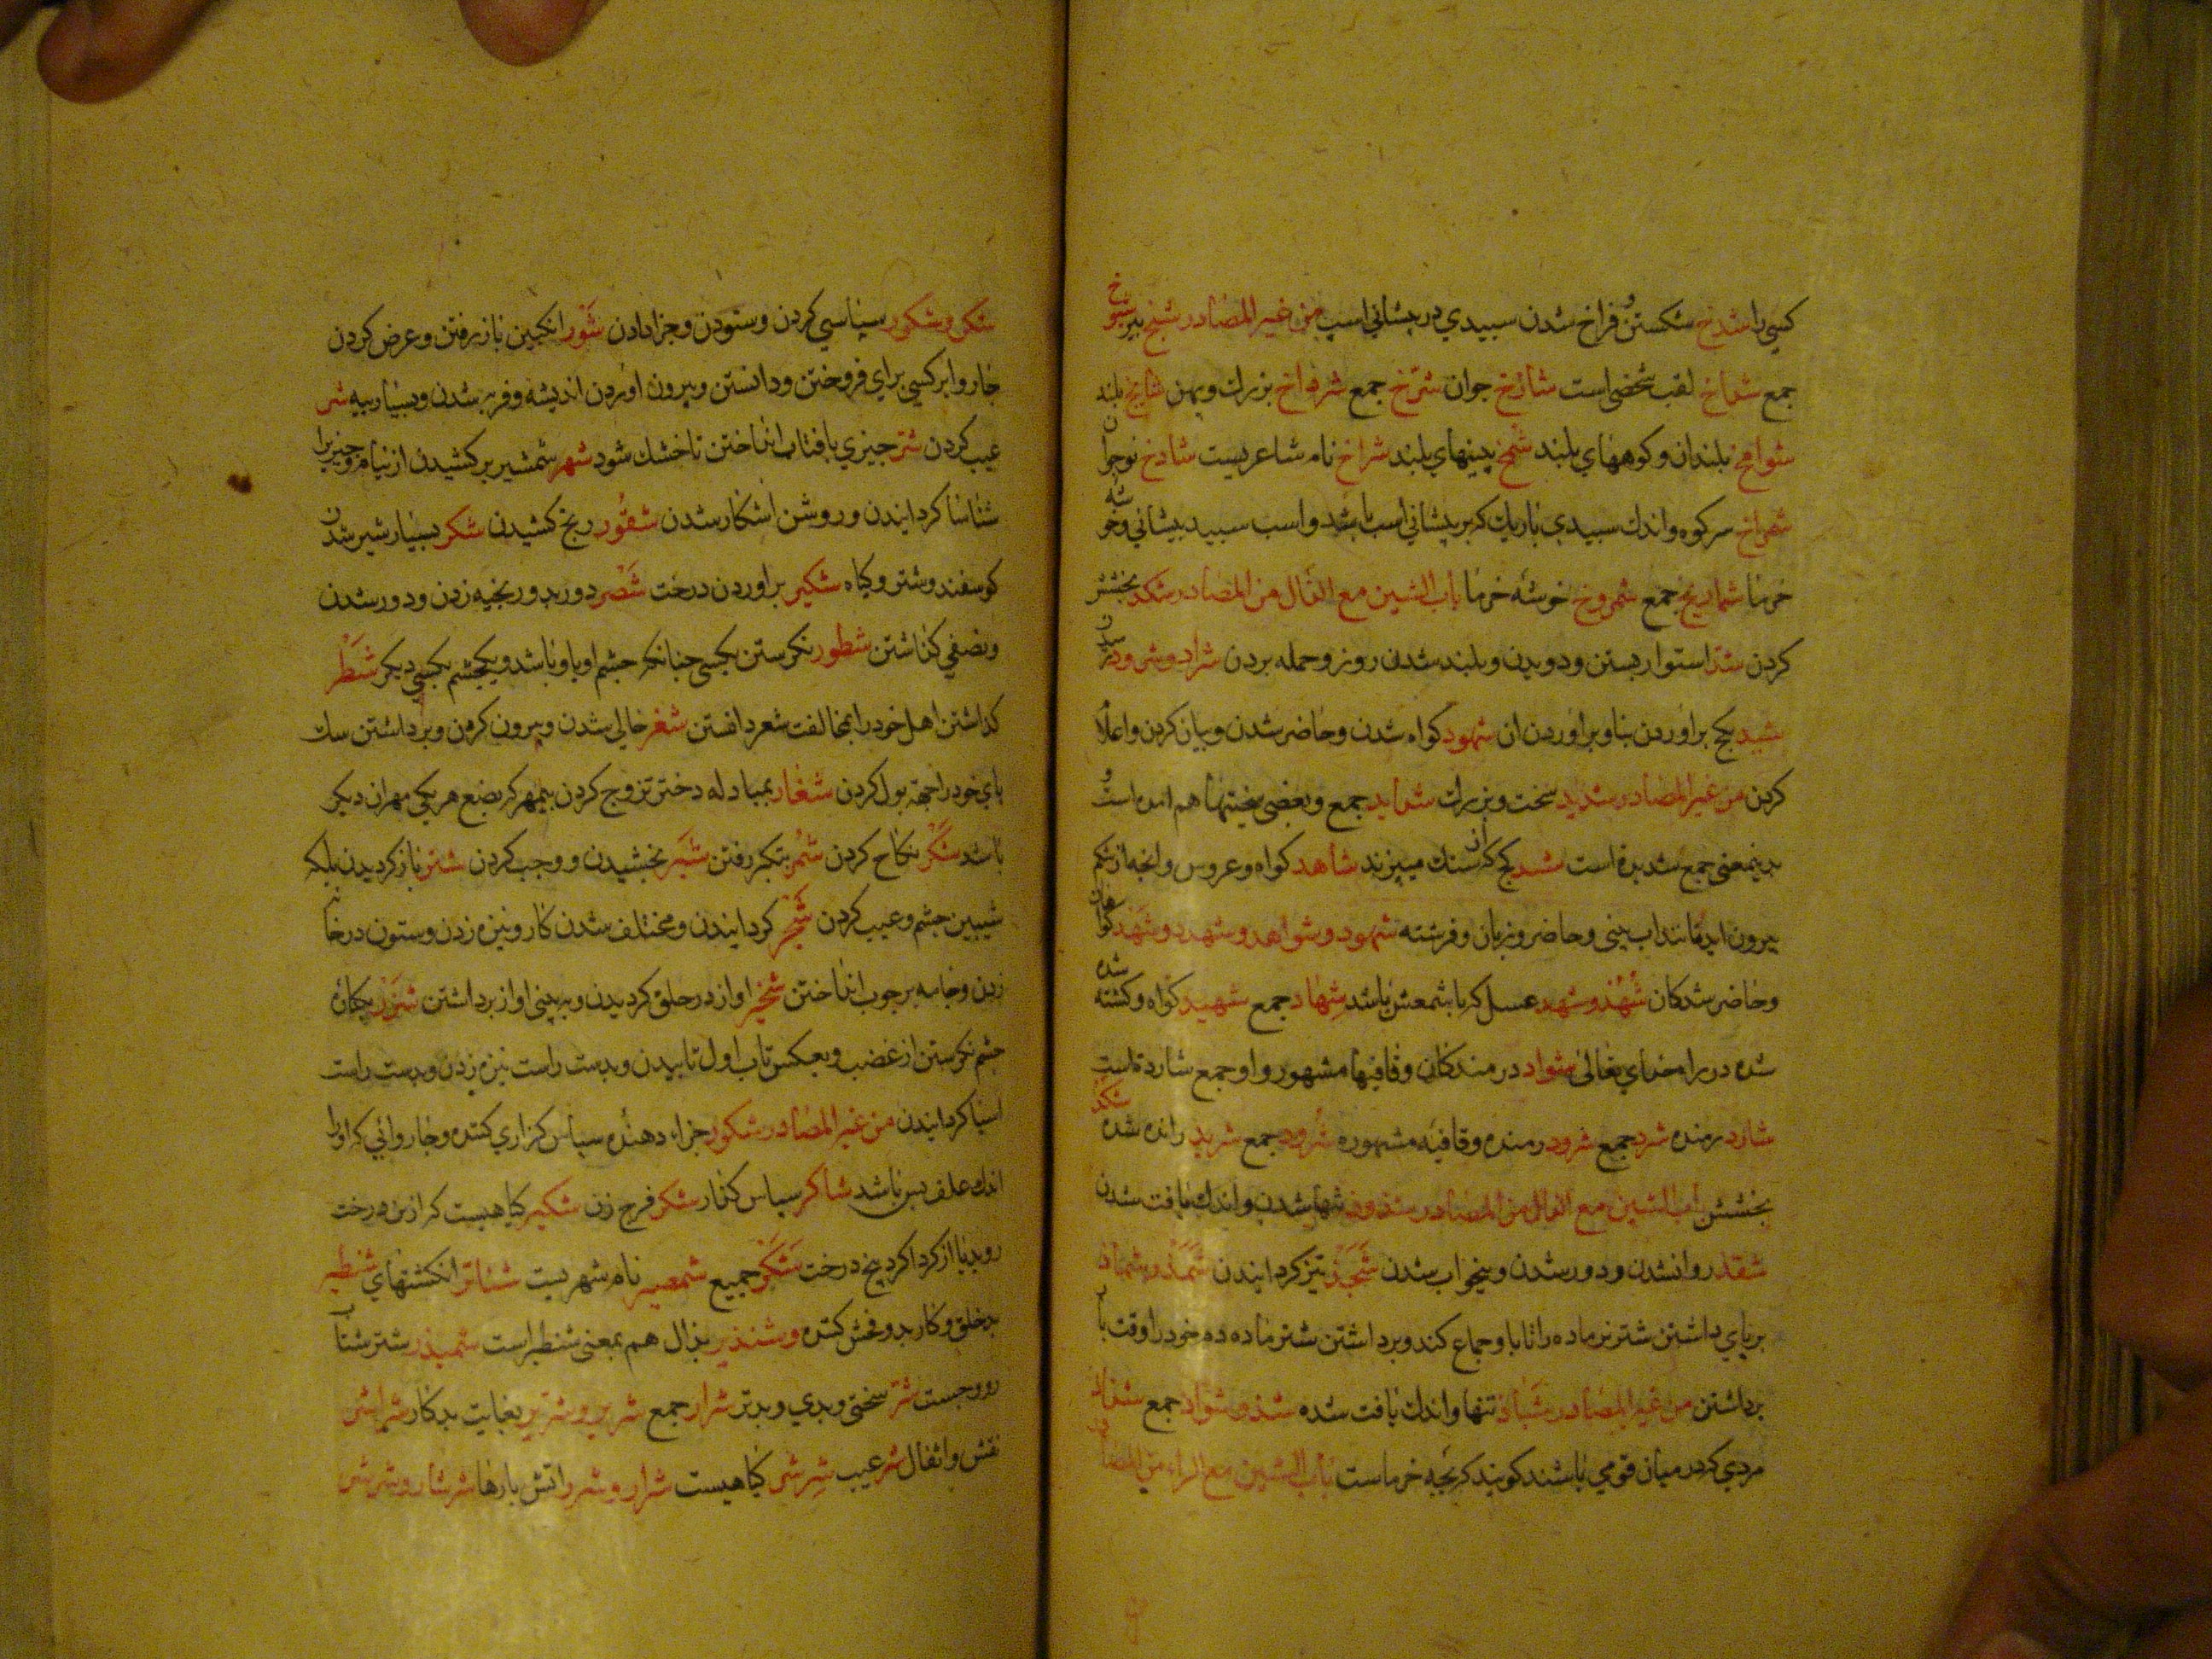 كسی را شدخ شكستن و فراخ شدن سبیدی در پیشانی اسپ من غیر المصادر شیخ پیر شیوخ
جمع شماخ لقب شخصی است شارخ جوان شرّخ جمع شرداخ بزرك و پهن شامخ بلند
شوامخ بلندان و كوههای بلند شمّخ بینیهای بلند شراخ نام شاعریست شادخ نوجوان
شمراخ سر كوه و اندك سبیدی باریك كه بر پیشانی اسب باشد و اسب سبید پیشانی و خوشه
خرما شماریخ جمع شمروخ خوشه خرما باب الشین مع الدال من المصادر شكد بخشش
كردن شدّ استوار بستن و دویدن و بلند شدن روز و حمله بردن شراد و شرود رمیدن
شید بكچ براوردن بنا و براوردن ان شهود كواه شدن و حاضر شدن و بیان كردن و اعلام
كردن من غیر المصادر شدید سخت و بزرك شداید جمع و بعضی سختیها هم امده است و
بدینمعنی جمع شدیدة است شید كچ كه از سنك میپزند شاهد كواه و عروس و انچه از شكم
بیرون اید مانند اب بینی و حاضر و زبان و فرشته شهود و شواهد و شهد و شهد كواهان
و حاضر شدكان شُهد و شهد عسل كه با شمعش باشد شهاد جمع شهید كواه و كشته شده
شده در راه خدای تعالی شوارد درمندكان و قافیها مشهور و او جمع شارده است
شارد رمنده شرد جمع شرود رمنده و قافیه مشهوره شرود جمع شرید رانده شده شكد
بخشش باب الشین مع الذال من المصادر شذوذ تنها شدن و اندك یافت شدن
شقذ روان شدن و دور شدن و بیخواب شدن شحذ تیز كردانیدن شمذ و شماذ
برپای داشتن شتر نر ماده را تا با او جماع كند و برداشتن شتر ماده دم خود را وقت بار
برداشتن من غیر المصادر شاذ تنها و اندك یافت شده شذ و شواذ جمع شذاذ
مردمی كه در میان قومی باشند كویند كه بچه خرماست باب الشین مع الراء من المصادر
شكر و شكور سپاسی كردن و ستودن و جزا دادن شور انكبین باز رفتن و عرض كردن
چاروا بر كسی برای فروختن و دانستن و بیرون اوردن اندیشه و فربه شدن و بسیار پیه شر
عیب كردن شرّ چیزی بافتاب انداختن تا خشك شود شهر شمشیر بركشیدن از نیام و چیزیرا
شناسا كردانیدن و روشن اشكار شدن شقور رنج كشیدن شكر بسیار شیر شدن
كوسفند و شتر و كیاه شكیر براوردن درخت شصر دوردور بخیه زدن و دور شدن
و نصفی كذاشتن شطور نكرستن بكسی چنانكه چشم او با او باشد و یكچشم بكسی دیكر شطر
كذاشتن اهل خود را بمخالفت شعر دانستن شغر خالی شدن و بیرون كردن و برداشتن سك
پای خود را جهة بول كردن شغار بمبادله دختر تزویج كردن بیمهر كه بضع هر یكی مهر ان دیكر
باشد شكر نكاح كردن شمر بتكبر رفتن شبر بخشیدن و وجب كردن شتر باز كردیدن پلك
شیبین چشم و عیب كردن شجر كردانیدن و مختلف شدن كار و نیزه زدن و ستون در خانه
زدن و جامه بر چوب انداختن شخیر اواز در حلق كردیدن و به بینی اواز برداشتن شزر بكناره
چشم نكرستن از غضب و بعكس تاب اول تابیدن و بدست راست نیزه زدن و بدست راست
اسیا كردانیدن من غیر المصادر شكور جزاء دهنده سپاس كزاری كننده و چاروائی كه او را
اندك علف بس باشد شاكر سپاس كذار شكر فرج زن شكیر كیاهیست كه از بن درخت
روید یا از كرداكرد بیخ درخت شكر جمیع شمصیر نام شهریست شناتر انكشتهای شنظیر
بدخلق و كار بد و فحش كننده و شنذیر بذال هم بمعنی شنظیر است شمیذر شتر شتاب
رو و چست شرّ سختی و بدی و بدتر شرار جمع شریر و شرّیر بغایت بدكار شراشر
نفس و اثقال شرّ عیب شرشر كیاهیست شرار و شرر اتش پارها شرشار و شرشر